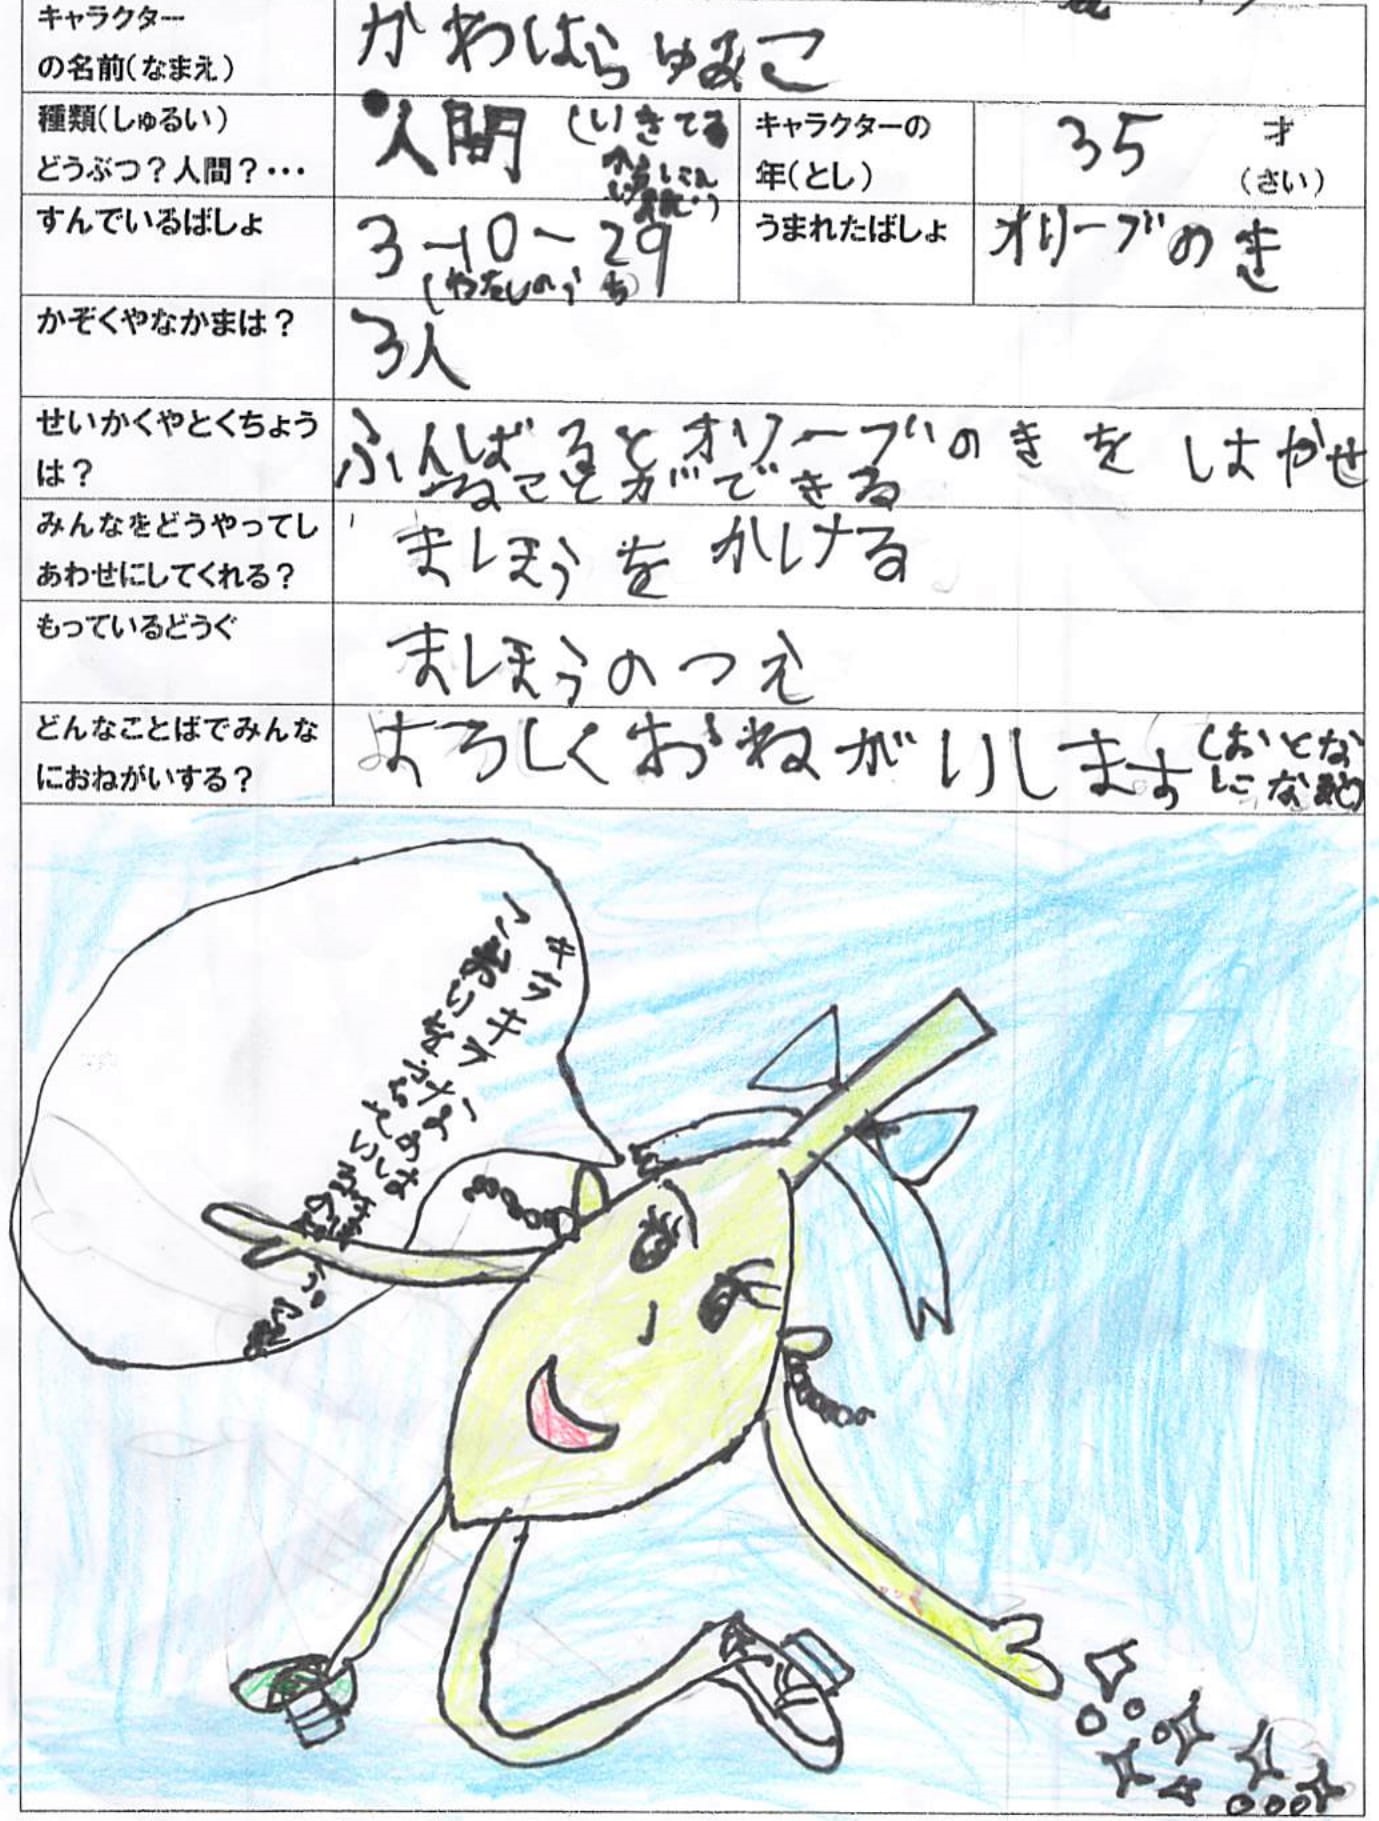 キャラクター
の名前(なまえ)
かわはらゆみこ
種類(しゅるい)
どうぶつ?人間?・・・
人間(いきてる
キャラクターの
年(とし)
35 才
(さい)
すんでいるばしょ
3-10-29
(わたしのうち)
うまれたばしょ
オリーブのき
かぞくやなかまは?
3人
せいかくやとくちょう
は?
ふんばるとオリーブのきをはやせ
ることができる
みんなをどうやってし
あわせにしてくれる?
まほうをかける
もっているどうぐ
まほうのつえ
どんなことばでみんな
におねがいする?
よろしくおねがいします(おとな
キラキラ